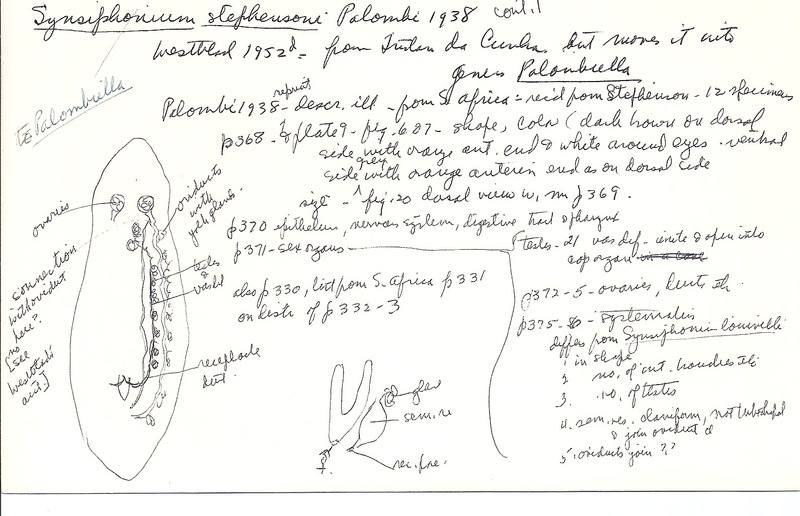 Synsiphonium stephensoni Palombi 1938 cont.
Westblad 1952d - from Tristan da Cunha, but moves it into
genus Palombiella
Palombiella
reprint
Palombi 1938 - descr. ill - from S. Africa - rec'd from Stephenson - 12 specimens
p368 - & plate 9 - fig. 6 & 7 - shape, color (dark brown on dorsal
side with orange ant. end & white around eyes. ventral
grey
side with orange anterior end as on dorsal side
size - fig. 20 dorsal view p369.
p370 epithelium, nervous system, digestive tract & pharynx
p371 - sex organs
testes - 21 vas def. - unite & open into
cop organ in a cone
also p330, list from S. Africa p331
on distr of p332-3
p372-5 - ovaries, ducts etc.
p375-80 - systematics
differs from Synsiphonium
1 in shape
2 no. of int. branches etc
3. no. of testes
4. sem. res. claviform, not tubeshaped
& join oviduct
5. oviducts join ??
ovaries
oviducts
with
yolk glands
connection
with oviduct
here?
[no
see
testes
receptacle
duct.
gland
sem. re
♀